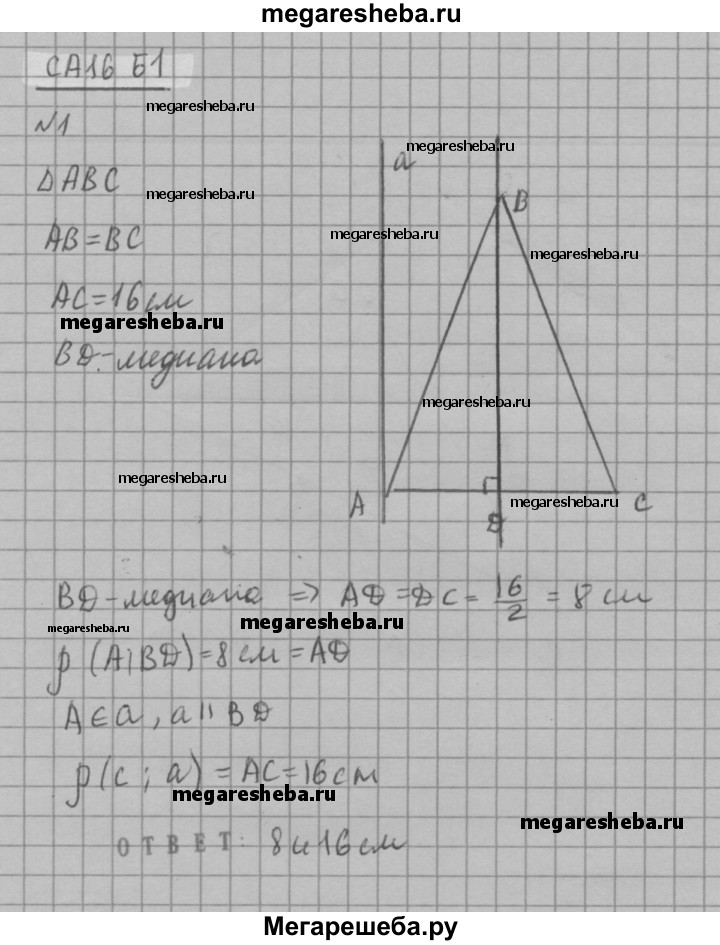 megaresheba.ru
СА16 Б1
megaresheba.ru
N1
megaresheba.ru
a
ΔABC
megaresheba.ru
B
AB=BC
megaresheba.ru
megaresheba.ru
AC=16см
megaresheba.ru
BD-медиана
megaresheba.ru
megaresheba.ru
A
megaresheba.ru
C
D
BD-медиана => AD=DC=16/2=8см
megaresheba.ru
megaresheba.ru
ρ(A;BD)=8см=AD
A∈a, a||BD
ρ(c; a)=AC=16см
megaresheba.ru
megaresheba.ru
ОТВЕТ: 8 и 16 см
Мегарешеба.ру